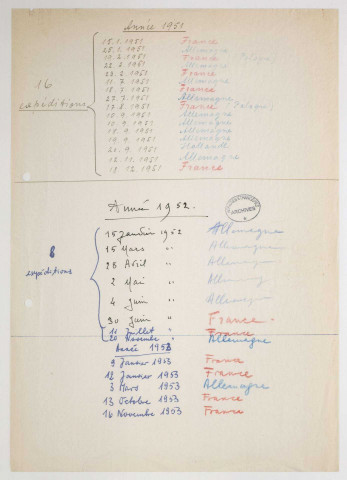 Année 1951
15.1.1951 France
25.1.1951 Allemagne
19.2.1951 France
22.2.1951 Allemagne
23.2.1951 France
11.3.1951 Allemagne
18.3.1951 France
27.3.1951 Allemagne
1951 France
10.9.1951 Allemagne
10.9.1951 Allemagne
18.9.1951 Allemagne
19.9.1951 Allemagne
20.9.1951 Hollande
12.11.1951 Allemagne
18.12.1951 France
16
expéditions
Année 1952.
ARCHIVES
15 Janvier 1952 Allemagne
15 Mars " Allemagne
28 Avril " Allemagne
2 Mai " Allemagne
4 Juin " Allemagne
30 Juin " France
11 Juillet " France
20 Novembre " Allemagne
8
expéditions
Année 1953
9 Janvier 1953 France
12 Janvier 1953 France
3 Mars 1953 Allemagne
13 Octobre 1953 France
16 Novembre 1953 France